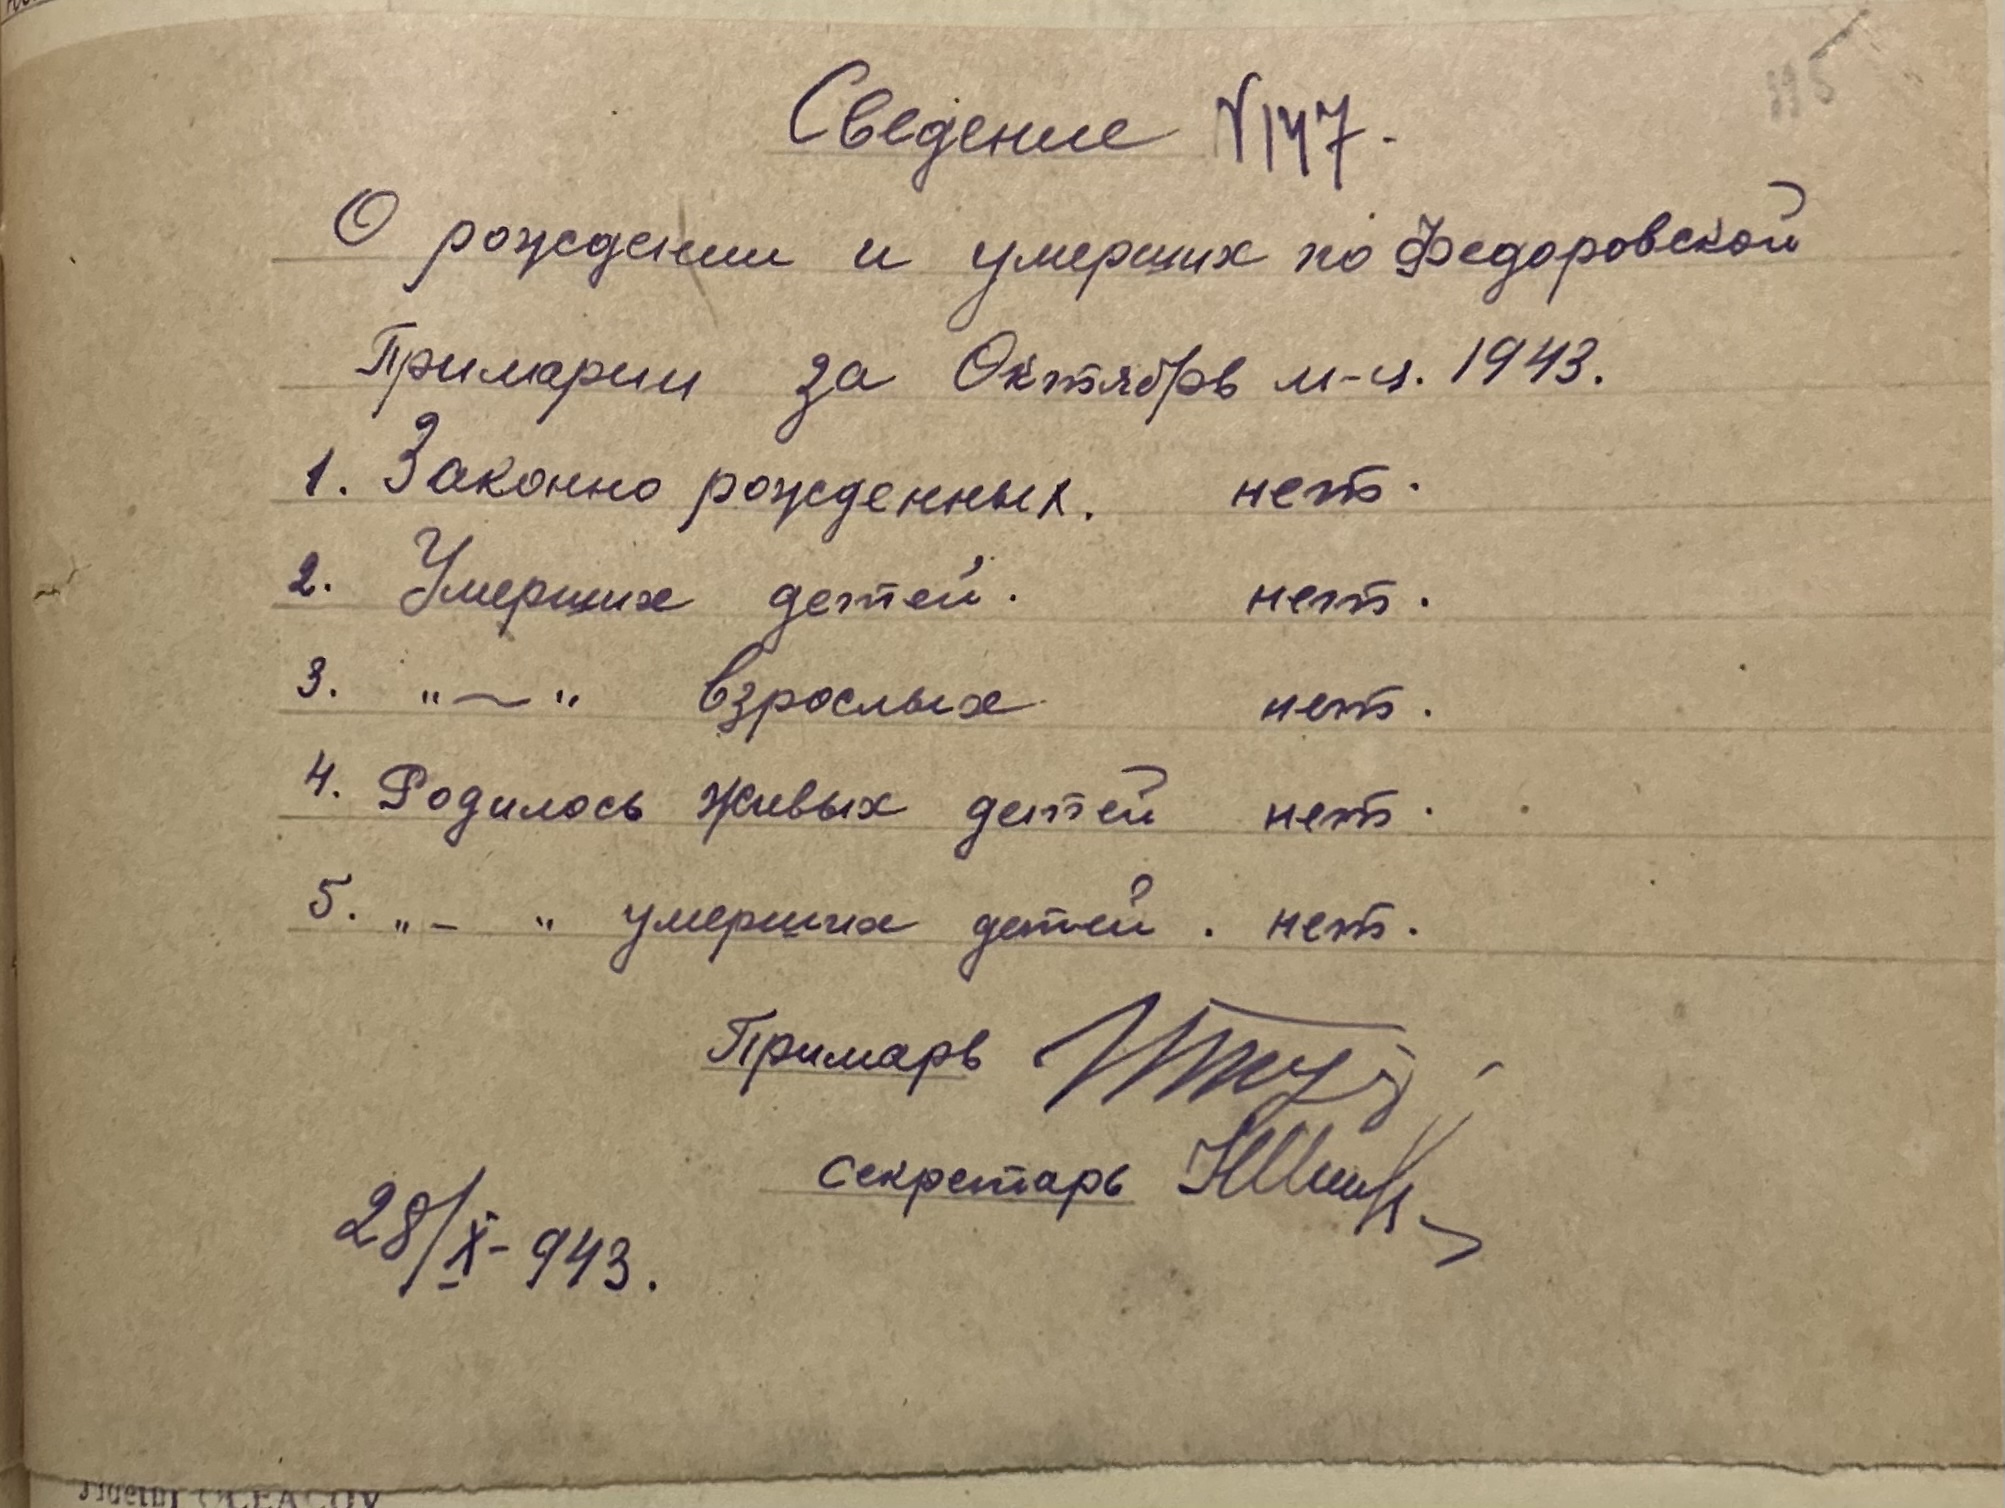 Сведение №147.
О рождении и умерших по Федоровской
Примарии за Октябрь м-ц. 1943.
1. Законно рожденных. нет.
2. Умерших детей. нет.
3. "—" взрослых нет.
4. Родилось живых детей нет.
5. "—" умерших детей. нет.
Примарь
Секретарь
28/X-943.